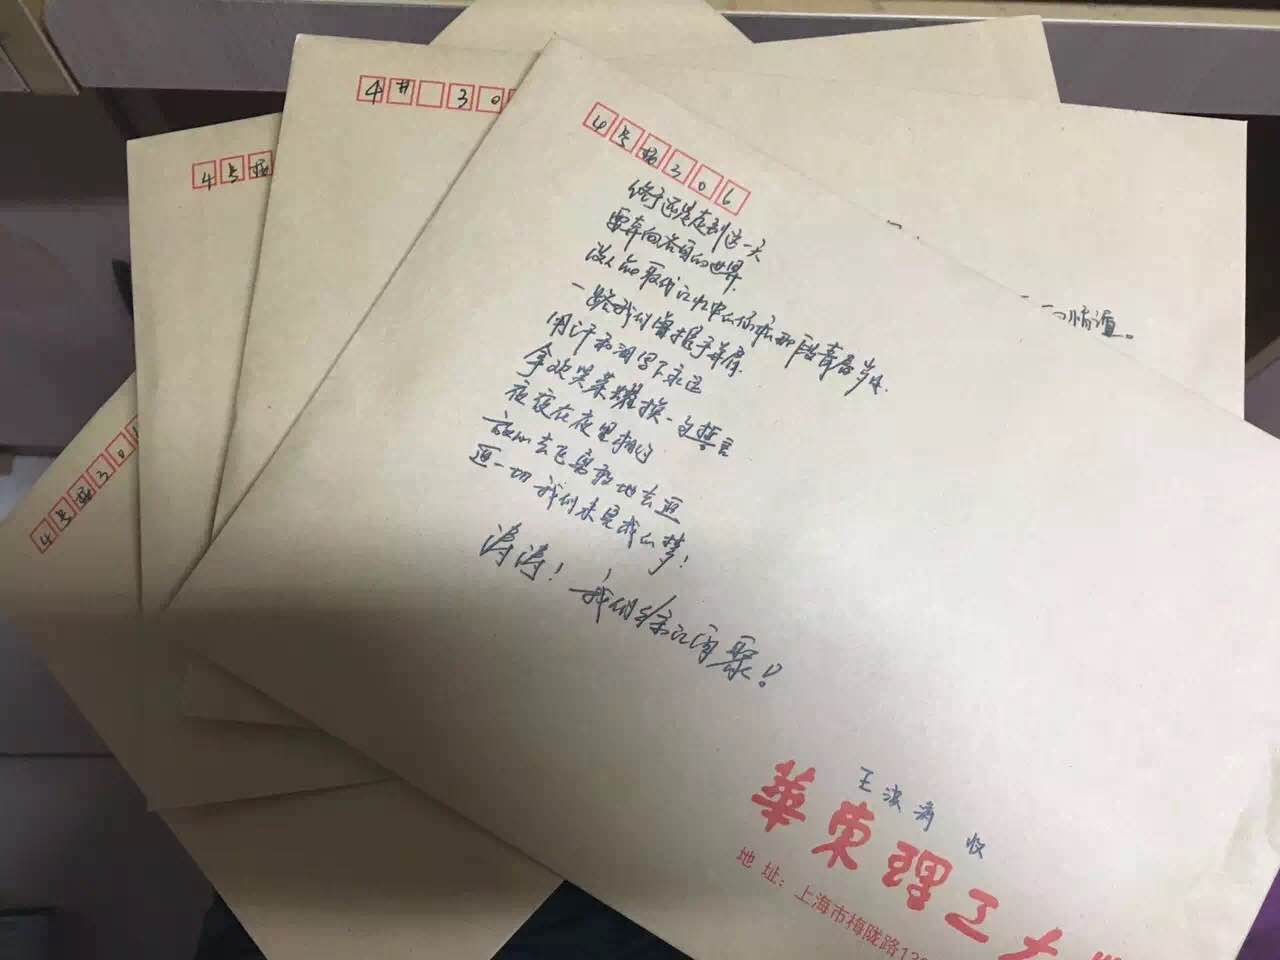 4号楼306
终于还是走到这一天
要奔向各自的世界
没人能取代记忆中的你和那段青春岁月
一路我们曾携手并肩
用汗和泪写下永远
拿欢笑荣耀换一句誓言
夜夜在夜里相约
放心去飞勇敢地去追
追一切我们未完成的梦!
涛涛!我们徐汇再聚!
王波涛 收
華東理工大
地址:上海市梅陇路130
4# 30
4号楼
4号楼30
情谊。